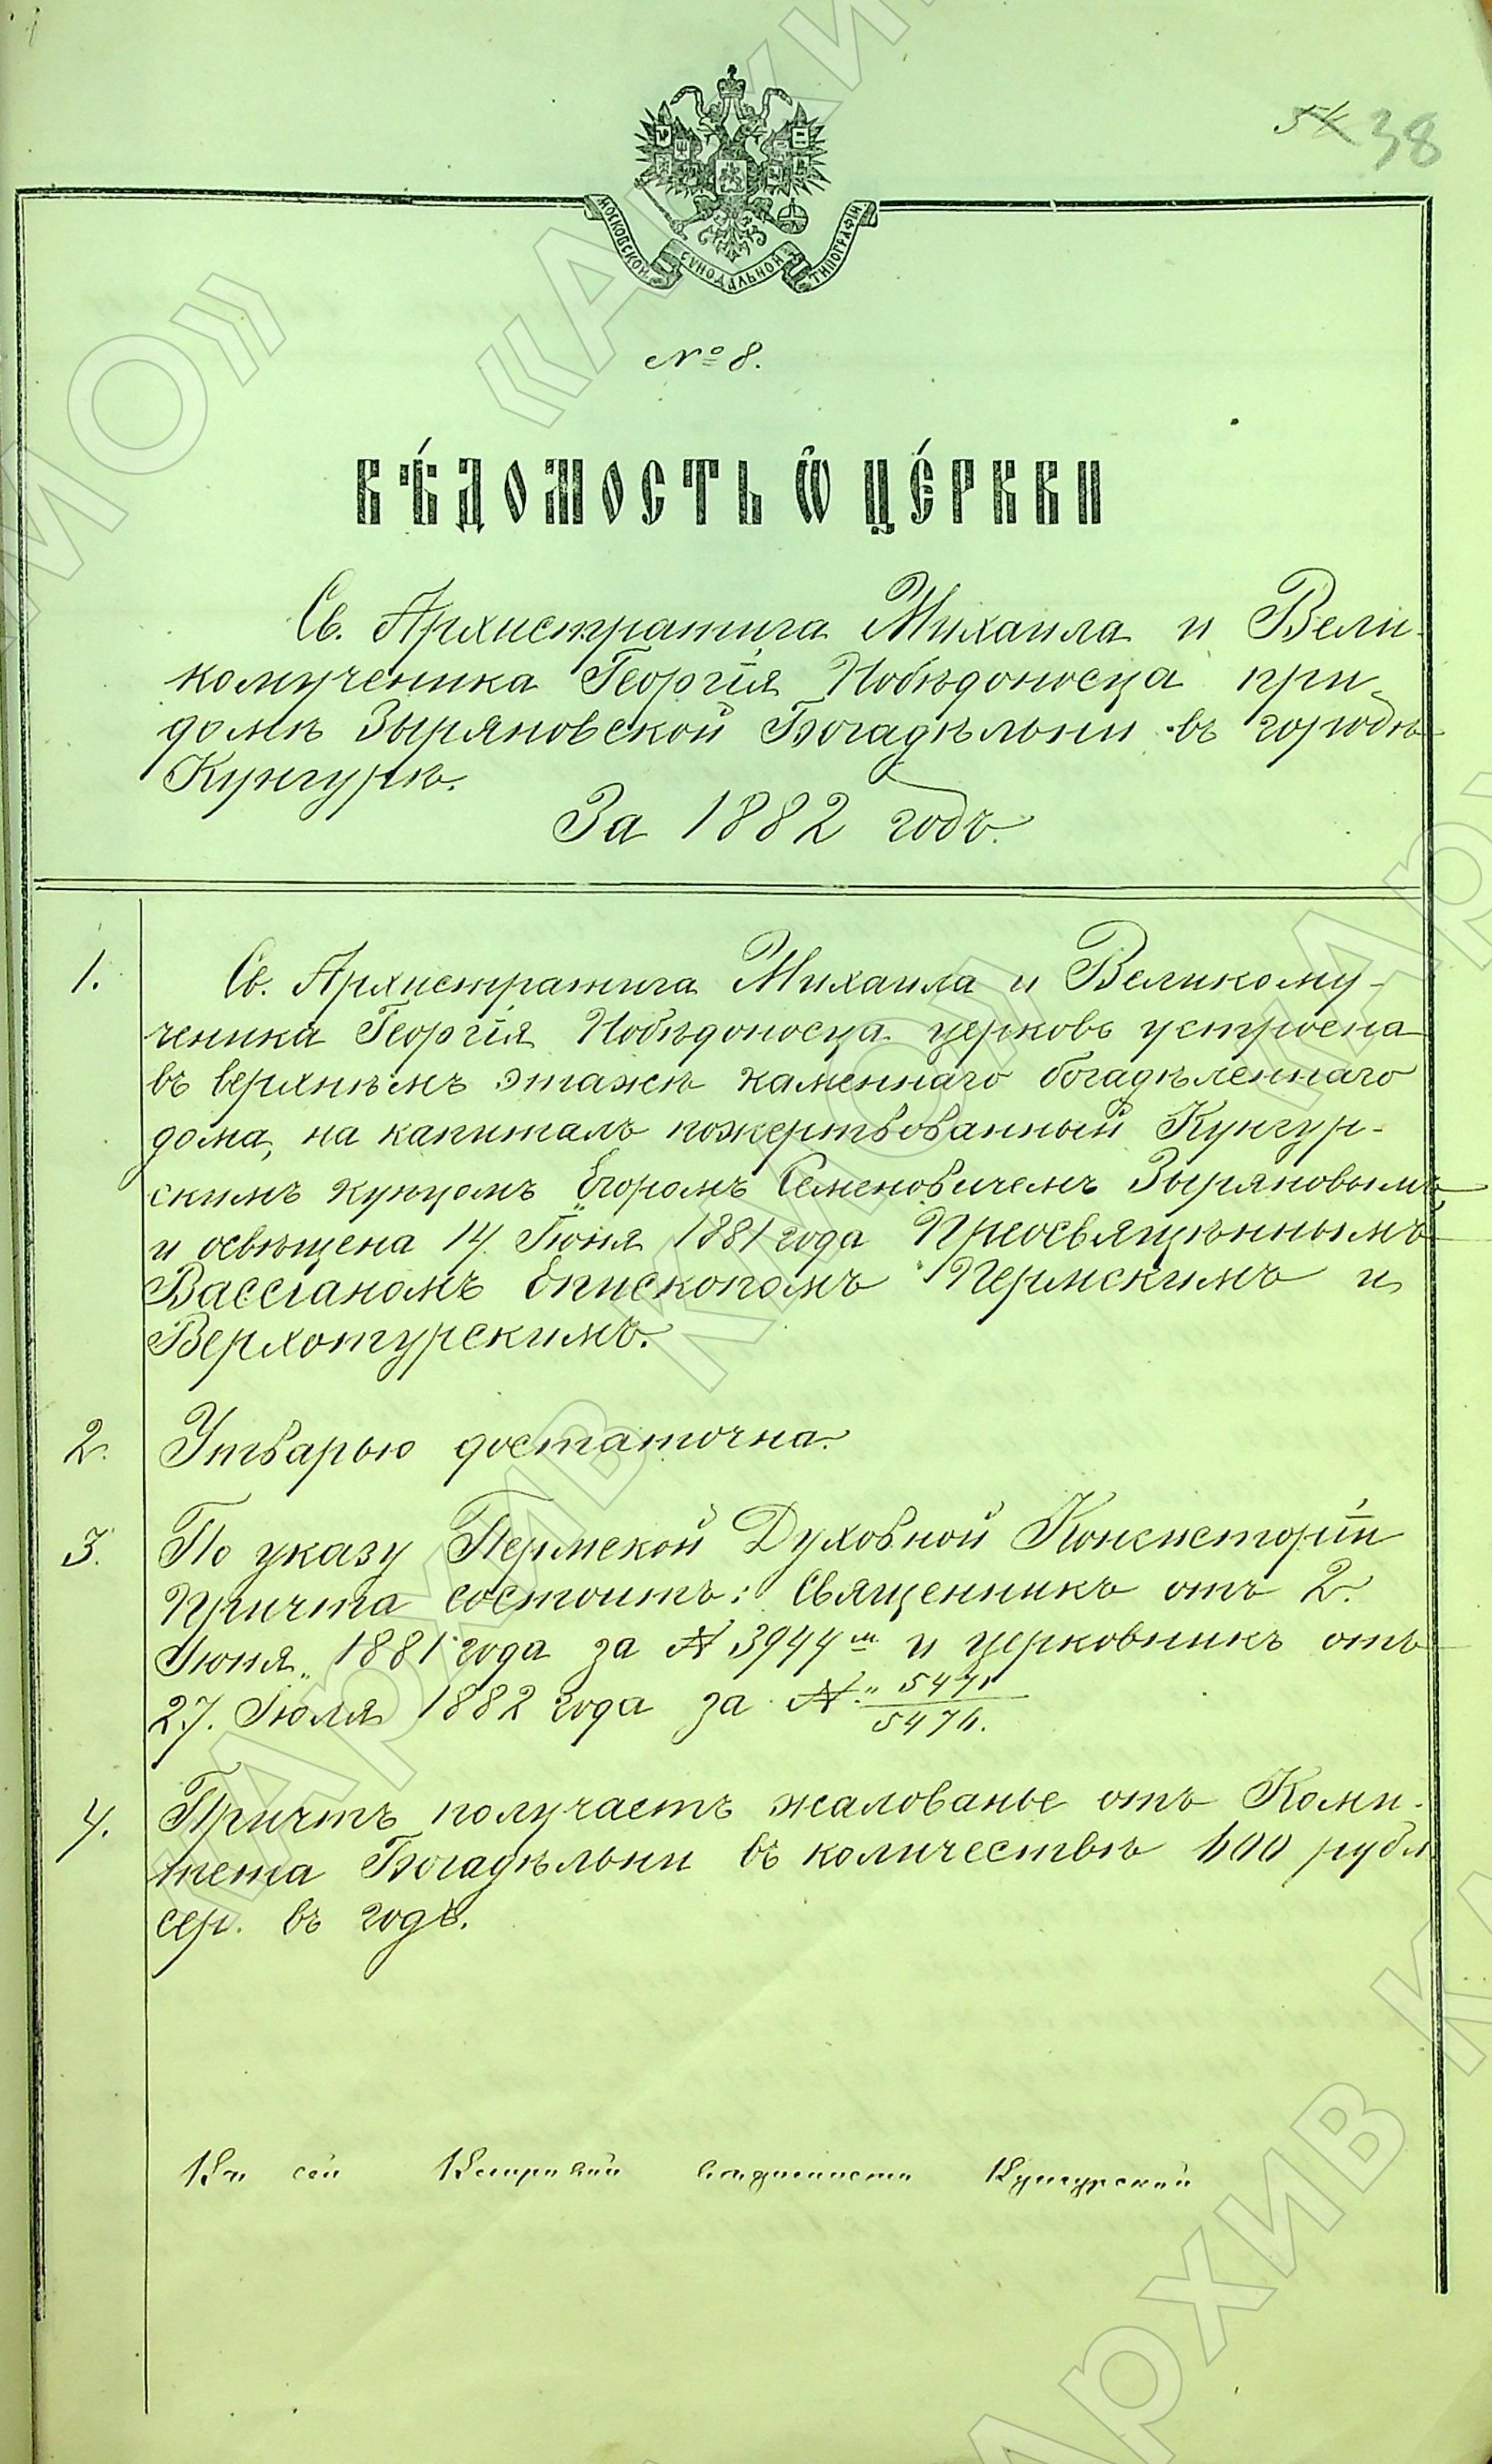 38
МОСКОВСКОЙ СѴНОДАЛЬНОЙ ТИПОГРАФІИ
№ 8.
ВѢ́ДОМОСТЬ Ѽ ЦЕ́РКВИ
Св. Архистратига Михаила и Вели-
комученика Георгія Побѣдоносца при
домѣ Зыряновской Богадѣльни въ городѣ
Кунгурѣ.
За 1882 годъ.
1. Св. Архистратига Михаила и Великому-
ченика Георгія Побѣдоносца церковь устроена
въ верхнѣмъ этажѣ каменнаго богадѣленнаго
дома, на капиталъ пожертвованный Кунгур-
скимъ купцомъ Егоромъ Семеновичемъ Зыряновымъ
и освѣщена 14 Іюня 1881 года Преосвященнымъ
Вассіаномъ Епископомъ Пермскимъ и
Верхотурскимъ.
2. Утварью достаточна.
3. По указу Пермской Духовной Консисторіи
Причта состоитъ: Священникъ отъ 2.
Іюня 1881 года за № 3944 м и церковникъ отъ
27. Іюля 1882 года за №
5476.
4. Причтъ получаетъ жалованье отъ Коми-
тета Богадѣльни въ количествѣ 600 рубл
сер. въ годъ.
Къ сей Клировой вѣдомости Кунгурской
«АРХИВ КАМОЛ»